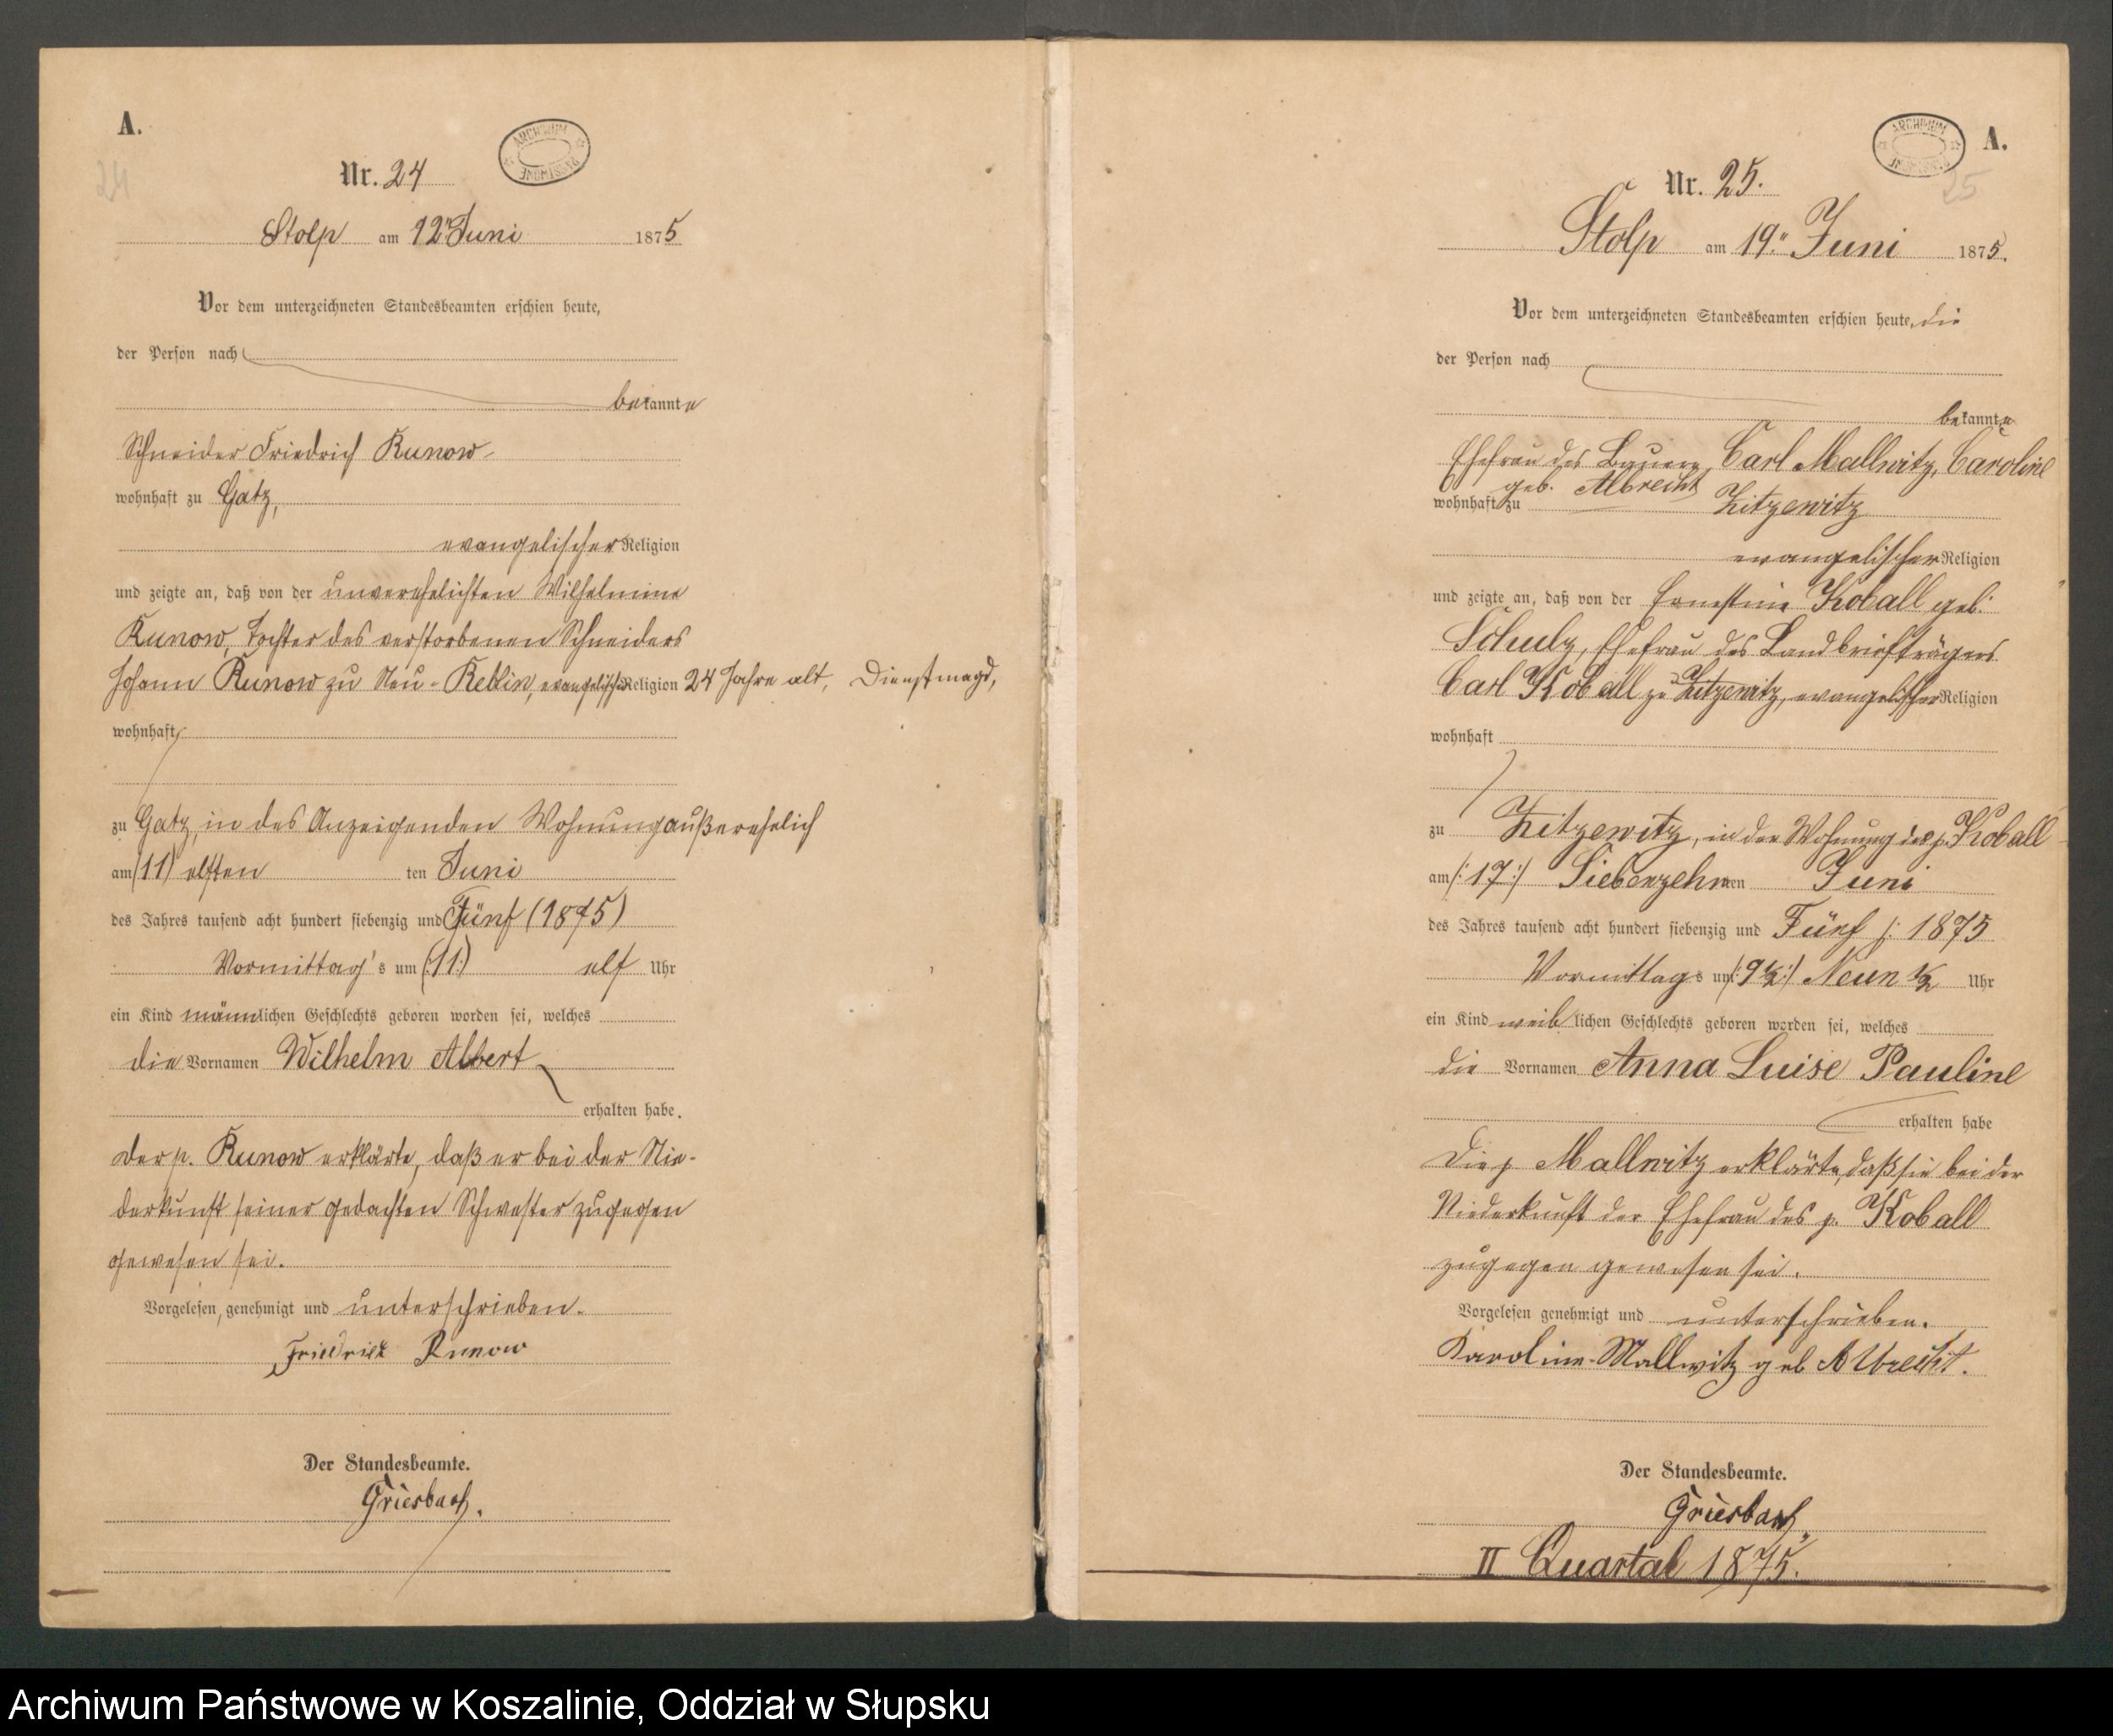 A.
24
ARCHIWUM PAŃSTWOWE
Nr. 24
Stolp am 12" Juni 1875
Vor dem unterzeichneten Standesbeamten erschien heute,
der Person nach
bekannte
Schneider Friedrich Kunow
wohnhaft zu Gatz,
evangelischer Religion
und zeigte an, daß von der unverehelichten Wilhelmine
Kunow, Tochter des verstorbenen Schneiders
Johann Kunow zu Neu-Reblin, evangelischer Religion 24 Jahre alt, Dienstmagd,
wohnhaft
zu Gatz, in des Anzeigenden Wohnung außerehelich
am (11) elften ten Juni
des Jahres tausend acht hundert siebenzig und Fünf (1875)
Vormittag's um (:11:) elf Uhr
ein Kind männlichen Geschlechts geboren worden sei, welches
die Vornamen Wilhelm Albert
erhalten habe.
Der p. Kunow erklärte, daß er bei der Nie-
derkunft seiner gedachten Schwester zugegen
gewesen sei.
Vorgelesen, genehmigt und unterschrieben.
Friedrich Kunow
Der Standesbeamte.
Griesbach.
ARCHIWUM PAŃSTWOWE
A.
25
Nr. 25.
Stolp am 19." Juni 1875.
Vor dem unterzeichneten Standesbeamten erschien heute, die
der Person nach
bekannte
Ehefrau des Bauern Carl Mallwitz, Caroline
geb. Albrecht
wohnhaft zu Zitzewitz
evangelischer Religion
und zeigte an, daß von der Ernestine Koball geb.
Schulz, Ehefrau des Landbriefträgers
Carl Koball zu Zitzewitz, evangelischer Religion
wohnhaft
zu Zitzewitz, in der Wohnung des p. Koball
am /:17:/ Siebenzehnten Juni
des Jahres tausend acht hundert siebenzig und Fünf /: 1875
Vormittags um /:9½:/ Neun ½ Uhr
ein Kind weiblichen Geschlechts geboren worden sei, welches
die Vornamen Anna Luise Pauline
erhalten habe
Die p Mallwitz erklärte, daß sie bei der
Niederkunft der Ehefrau des p. Koball
zugegen gewesen sei.
Vorgelesen genehmigt und unterschrieben.
Karoline Mallwitz geb Albrecht.
Der Standesbeamte.
Griesbach.
II Quartal 1875.
Archiwum Państwowe w Koszalinie, Oddział w Słupsku